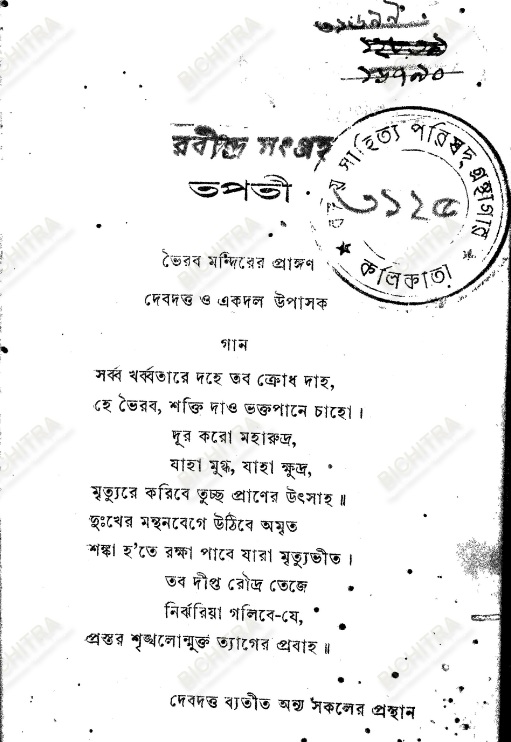 রবীন্দ্র সংগ্রহ
তপতী
বঙ্গীয় সাহিত্য পরিষদ গ্রন্থাগার
৩১২৫
কলিকাতা
ভৈরব মন্দিরের প্রাঙ্গণ
দেবদত্ত ও একদল উপাসক
গান
সর্ব্ব খর্ব্বতারে দহে তব ক্রোধ দাহ,
হে ভৈরব, শক্তি দাও ভক্তপানে চাহো।
দূর করো মহারুদ্র,
যাহা মুগ্ধ, যাহা ক্ষুদ্র,
মৃত্যুরে করিবে তুচ্ছ প্রাণের উৎসাহ॥
দুঃখের মন্থনবেগে উঠিবে অমৃত
শঙ্কা হ'তে রক্ষা পাবে যারা মৃত্যুভীত।
তব দীপ্ত রৌদ্র তেজে
নির্ঝরিয়া গলিবে-যে,
প্রস্তর শৃঙ্খলোন্মুক্ত ত্যাগের প্রবাহ॥
দেবদত্ত ব্যতীত অন্য সকলের প্রস্থান
BICHITRA